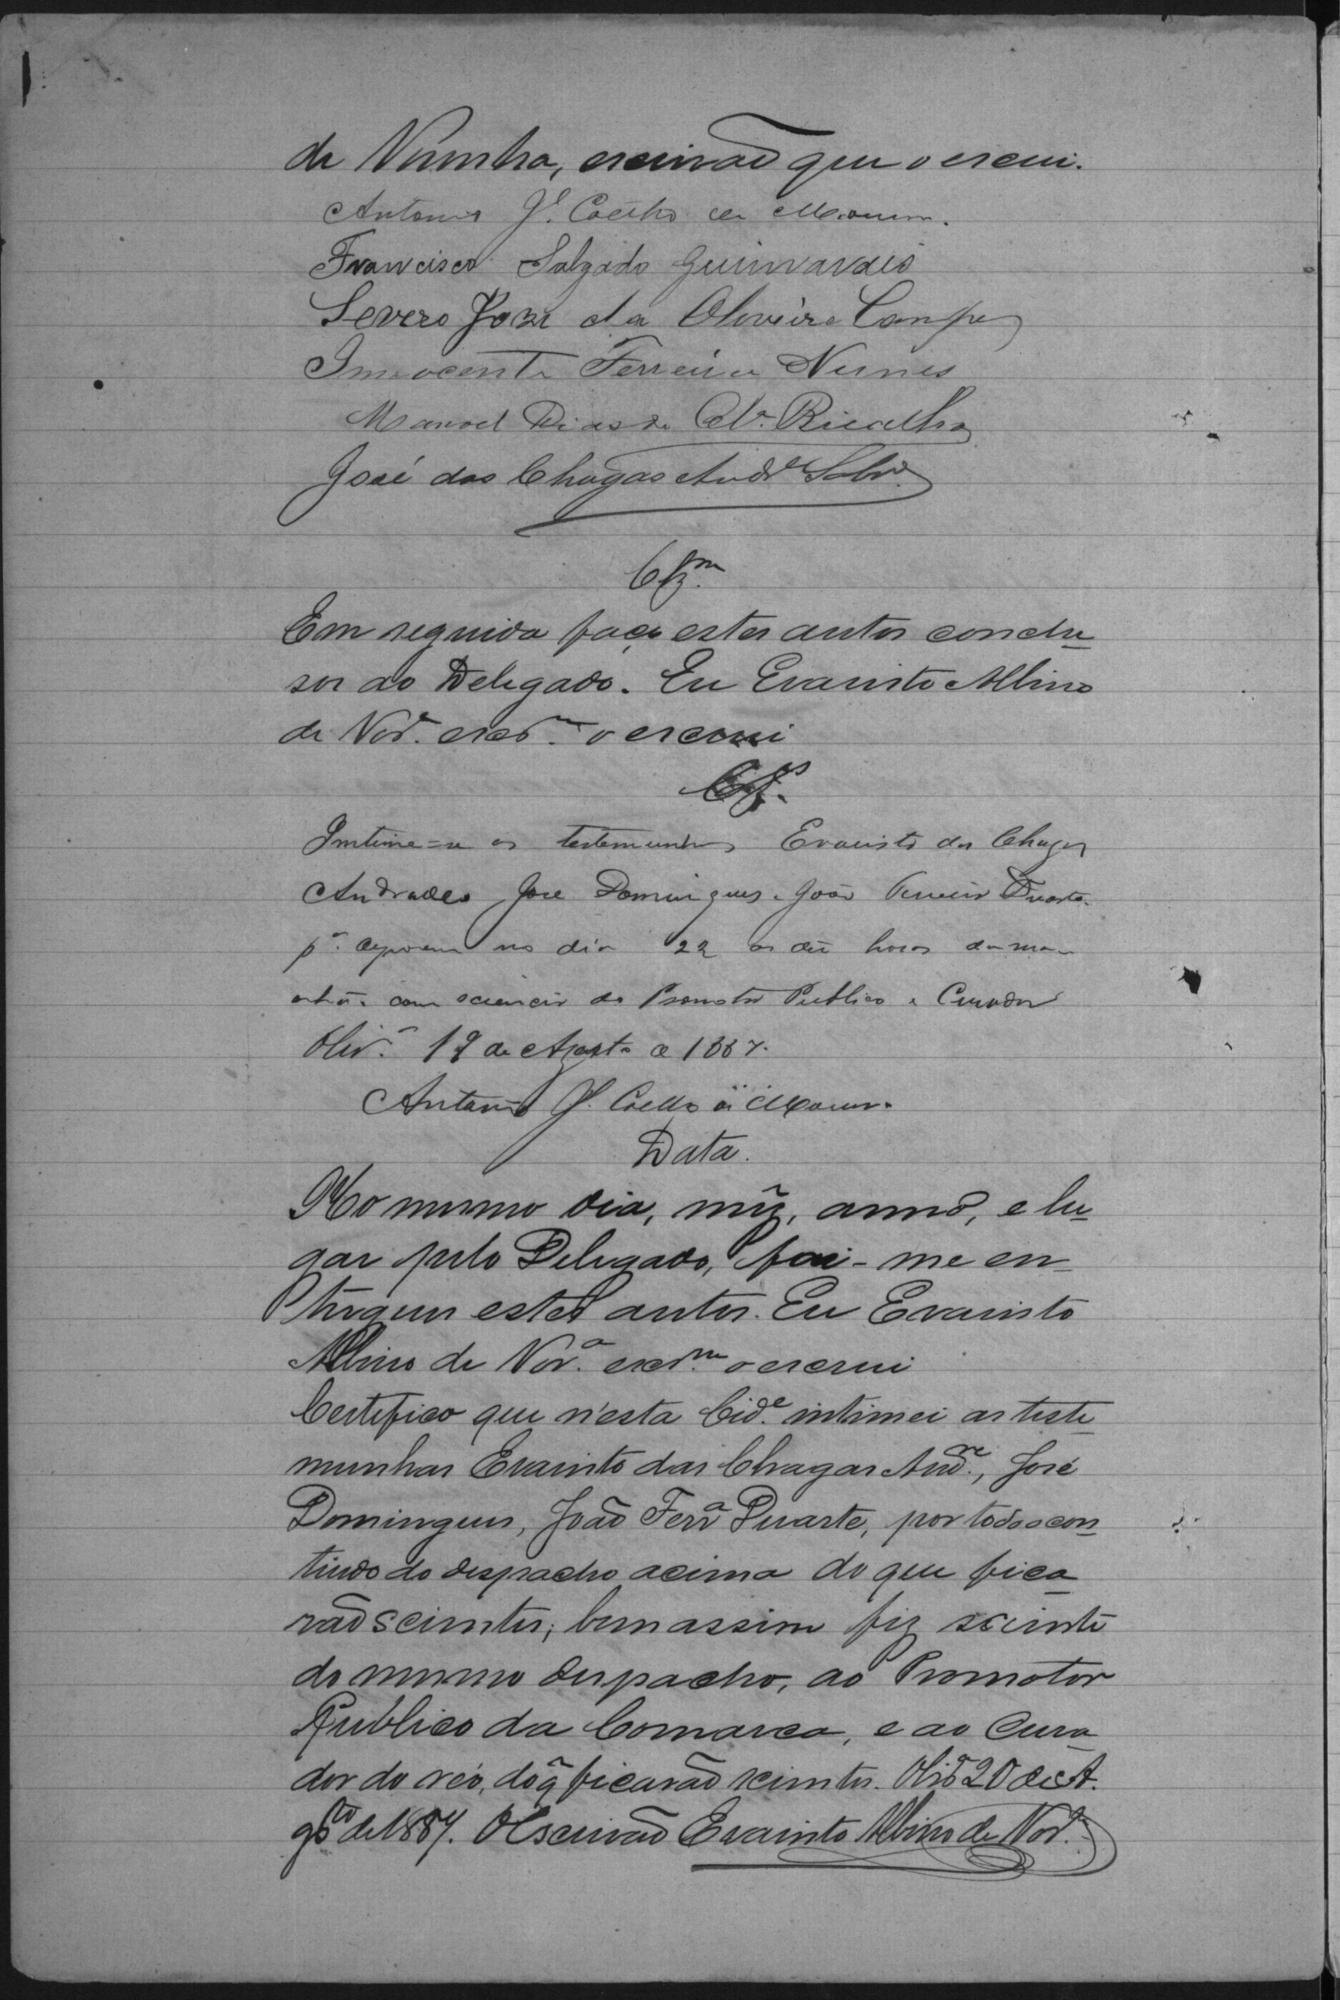 de Noronha, escrivão que o escrevi.
Antonio J.e Coelho de Moura.
Francisco Salgado Guimarães
Severo José de Oliveira Campos
Innocente Ferreira Nunes
Manoel Dias de Carvalho
José das Chagas Andr.e Sobr.o
Clz.m
Em seguida faço estes autos conclu-
sos ao Delegado. Eu Evaristo Albino
de Nor.a escr.m o escrevi
Cls.
Intime-se as testemunhas Evaristo das Chagas
Andrade, José Domingues e João Ferreira Duarte
p.a deporem no dia 22 as dez horas da ma-
nhã, com sciencia do Promotor Publico e Curador
Oliv.a 19 de Agosto de 1887.
Antonio J.e Coelho de Moura.
Data.
No mesmo dia, mez, anno, e lu-
gar pelo Delegado, foi-me en-
tregues estes autos. Eu Evaristo
Albino de Nor.a escr.m o escrevi
Certifico que n'esta Cid.e intimei as teste-
munhas Evaristo das Chagas And.e, José
Domingues, João Ferr.a Duarte, por todo o con-
tiudo do despacho acima do que fica-
rão scientes; bem assim fiz sciente
do mesmo despacho, ao Promotor
Publico da Comarca, e ao Cura-
dor do réo, do q̃ ficarão scientes. Oliv.a 20 de A-
gôsto de 1887. O Escrivão Evaristo Albino de Nor.a